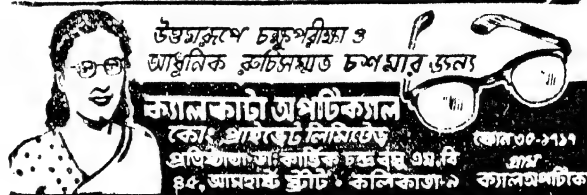 উত্তমরূপে চক্ষুপরীক্ষা ও
আধুনিক রুচিসম্মত চশমার জন্য
ক্যালকাটা অপটিক্যাল
কোং প্রাইভেট লিমিটেড
প্রতিষ্ঠাতা-ডাঃ কার্ত্তিক চন্দ্র বসু এম,বি
৪৫, আমহার্স্ট স্ট্রীট • কলিকাতা-৯
ফোন ৩৫-১৭১৭
গ্রাম
ক্যালঅপটিক